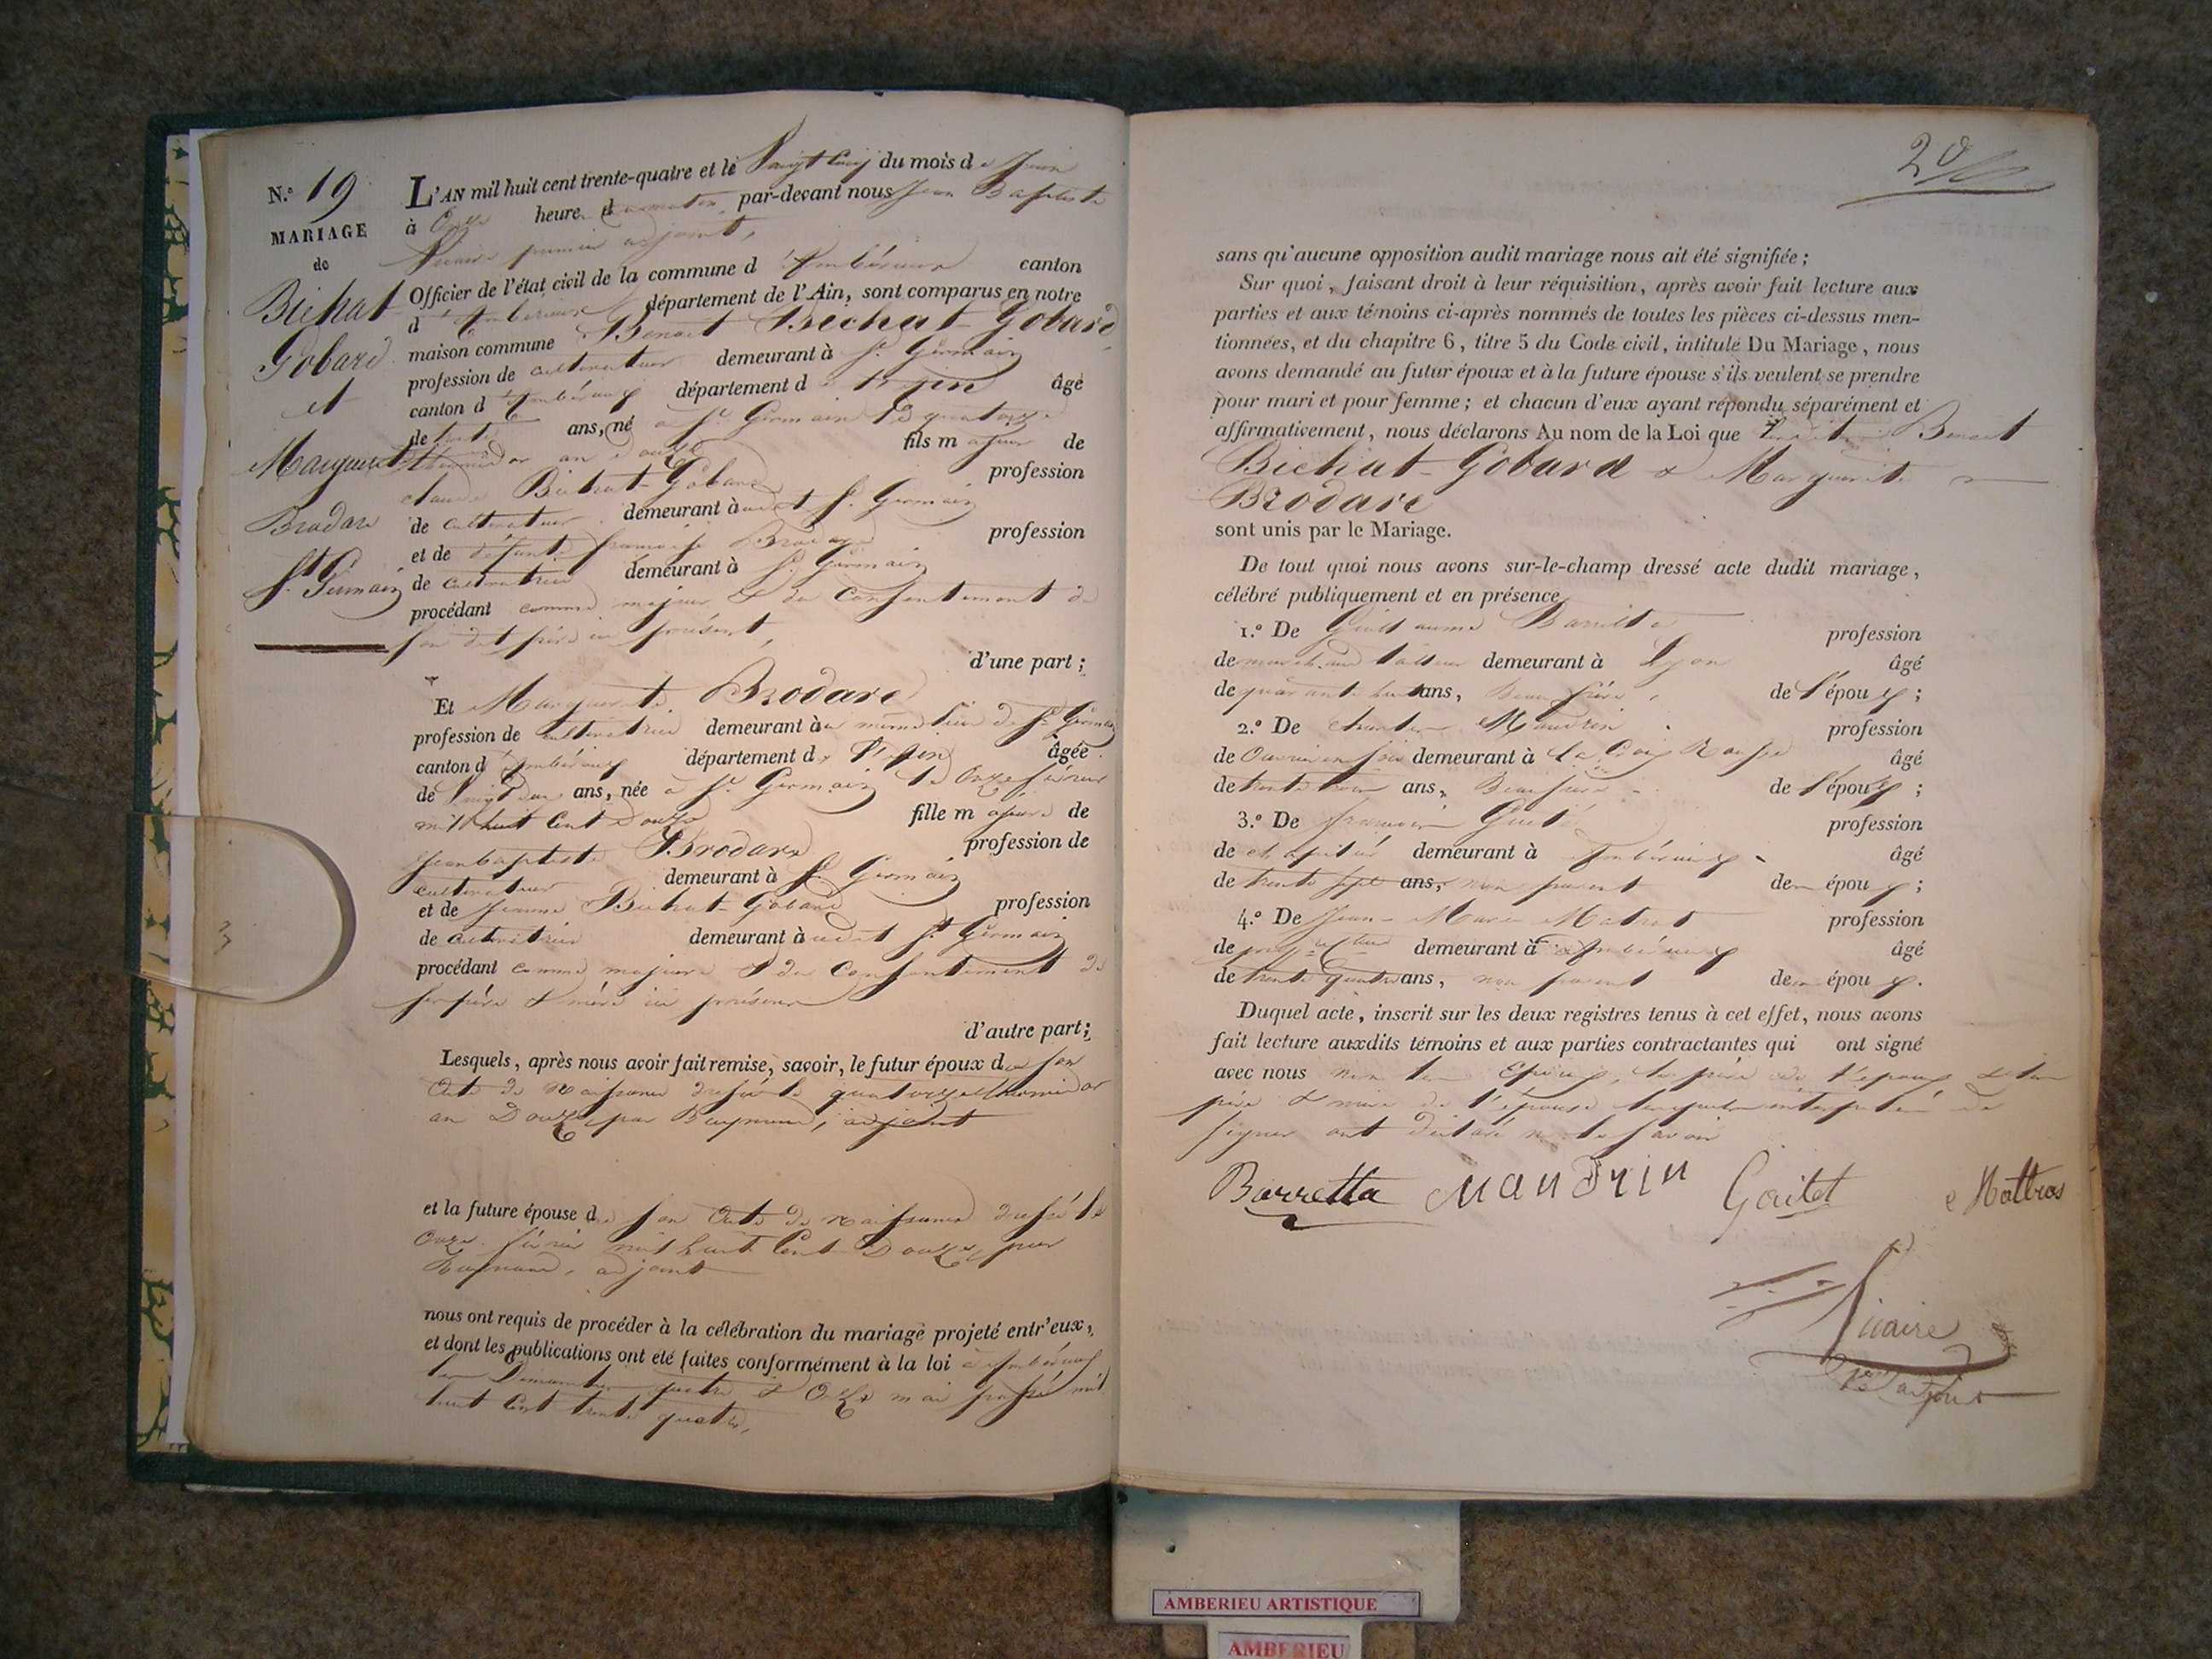 N.º 19
MARIAGE
de
Bichat
Gobard
et
Marguerite
Brodare
St. Germain
L'AN mil huit cent trente-quatre et le Vingt Cinq du mois de Juin
à Onze heures du matin par-devant nous Jean Baptiste
Sicaire premier adjoint,
Officier de l'état civil de la commune d'Ambérieux canton
d'Ambérieux département de l'Ain, sont comparus en notre
maison commune Benoit Bichat-Gobard
profession de cultivateur demeurant à St. Germain
canton d'Ambérieux département de l'Ain âgé
de trente ans, né à St. Germain le quatorze
thermidor an douze fils majeur de
claude Bichat-Gobard profession
de cultivateur demeurant audit St. Germain
et de défunte françoise profession
de cultivatrice demeurant à St. Germain
procédant comme majeur & du consentement de
son dit père ici présent,
d'une part ;
Et Marguerite Brodare
profession de cultivatrice demeurant au même lieu de St. Germain
canton d'Ambérieux département de l'Ain âgée
de Vingt deux ans, née à St. Germain le Onze février
mil huit cent douze fille majeure de
Jean baptiste Brodare profession de
cultivateur demeurant à St. Germain
et de Jeanne Bichat-Gobard profession
de cultivatrice demeurant audit St. Germain
procédant comme majeure & du consentement de
ses père & mère ici présens
d'autre part ;
Lesquels, après nous avoir fait remise, savoir, le futur époux de son
Acte de naissance dressé le quatorze thermidor
an Douze par Raymond, adjoint
et la future épouse de son Acte de naissance dressé le
Onze février mil huit Cent Douze par
Raymond, adjoint
nous ont requis de procéder à la célébration du mariage projeté entr'eux,
et dont les publications ont été faites conformément à la loi à Ambérieux
les Dimanches quatre & Onze mai passé mil
huit Cent trente quatre,
20
sans qu'aucune opposition audit mariage nous ait été signifiée ;
Sur quoi, faisant droit à leur réquisition, après avoir fait lecture aux
parties et aux témoins ci-après nommés de toutes les pièces ci-dessus men-
tionnées, et du chapitre 6, titre 5 du Code civil, intitulé Du Mariage, nous
avons demandé au futur époux et à la future épouse s'ils veulent se prendre
pour mari et pour femme ; et chacun d'eux ayant répondu séparément et
affirmativement, nous déclarons Au nom de la Loi que Benoit
Bichat-Gobard & Marguerite
Brodare
sont unis par le Mariage.
De tout quoi nous avons sur-le-champ dressé acte dudit mariage,
célébré publiquement et en présence
1.º De Guillaume Barretta profession
de marchand tailleur demeurant à Lyon âgé
de quarante huit ans, Beau frère de l'époux ;
2.º De Mandrin profession
de Ouvrier en soie demeurant à La Croix Rousse âgé
de trente trois ans, Beau frère de l'époux ;
3.º De françois profession
de demeurant à Ambérieux âgé
de trente sept ans, non parent des époux ;
4.º De Jean-Marie profession
de demeurant à Ambérieux âgé
de trente quatre ans, non parent des époux.
Duquel acte, inscrit sur les deux registres tenus à cet effet, nous avons
fait lecture auxdits témoins et aux parties contractantes qui ont signé
avec nous non les Epoux, le père de l'époux & les
père & mère de l'épouse lesquels interpellés de
signer ont déclaré ne le savoir
Barretta Mandrin Gaitet Mottras
Sicaire
1er adjoint
AMBERIEU ARTISTIQUE
AMBERIEU